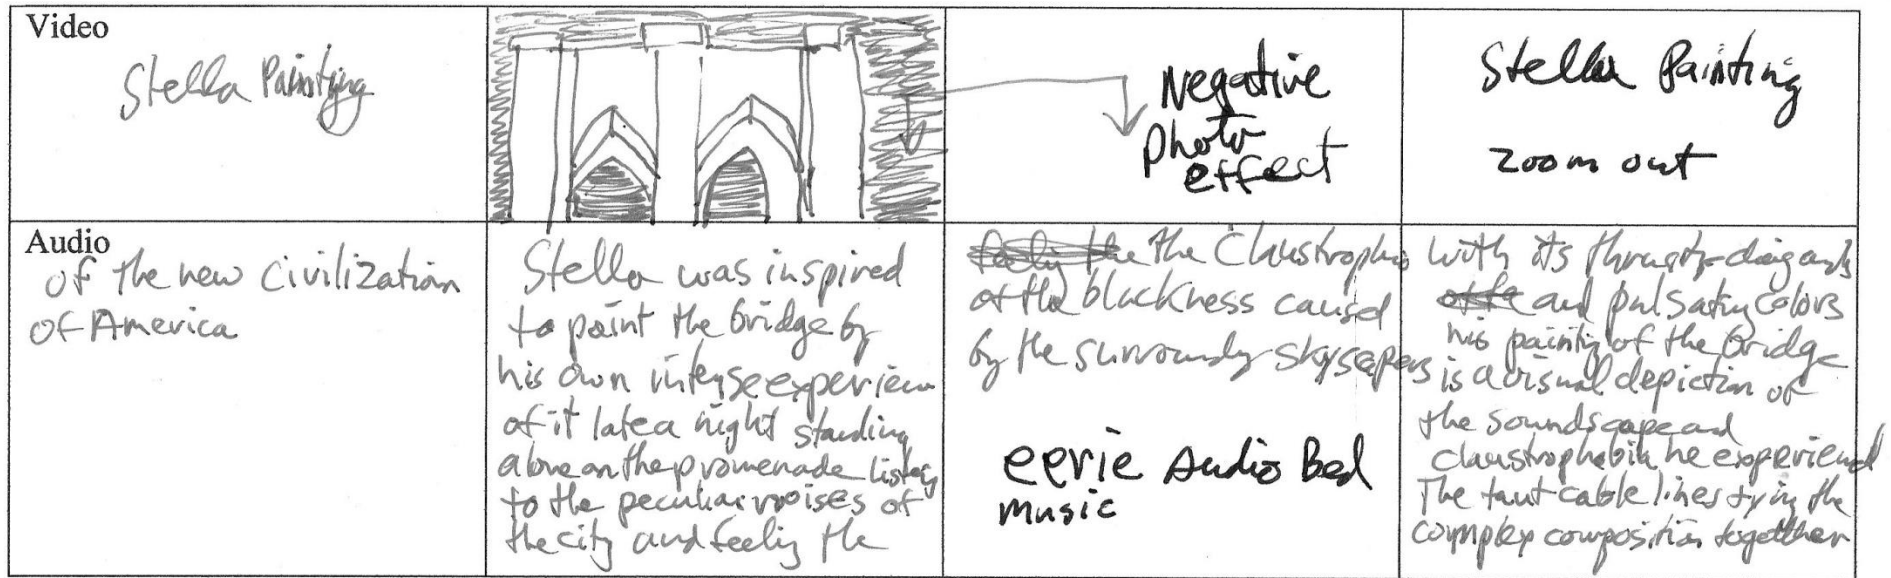 Video
Stella Painting
Negative
Photo
effect
Stella Painting
zoom out
Audio
of the new civilization
of America
Stella was inspired
to paint the bridge by
his own intense experience
of it late a night standing
alone on the promenade listeng
to the peculiar noises of
the city and feeling the
the Claustrophia
of the blackness caused
by the surroundg skyscapers
eerie Audio Bed
music
with its
and pulsating colors
his painting of the bridge
is a visual depiction of
the soundscape and
he experienced
The taut cable lines tying the
complex composition together